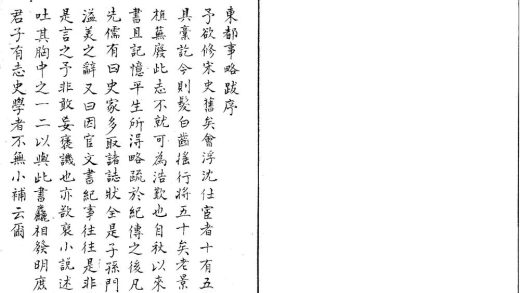 東都事略跋序
予欲修宋史舊矣會浮沈仕宦者十有五
具稾訖今則髮白齒搖行將五十矣老景
樵蕪廢此志不就可為浩歎也自秋以來
書且記憶平生所得略疏於紀傳之後凡
先儒有曰史家多取諸誌狀全是子孫門
溢美之辭又曰因官文書紀事往往是非
是言之予非敢妄褒譏也亦欲裒小說述
吐其胸中之一二以與此書麤相發明庶
君子有志史學者不無小補云爾